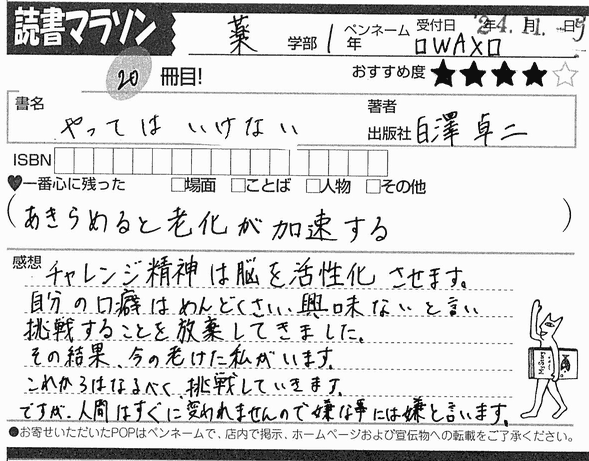 読書マラソン
薬 学部 1 年 ペンネーム □WAX□ 受付日 24年11月 日
20 冊目! おすすめ度 ★★★★☆
書名 著者
やってはいけない 出版社 白澤卓二
ISBN
♥一番心に残った □場面 □ことば □人物 □その他
(あきらめると老化が加速する)
感想 チャレンジ精神は脳を活性化させます。
自分の口癖はめんどくさい、興味ないと言い
挑戦することを放棄してきました。
その結果、今の老けた私がいます。
これからはなるべく、挑戦していきます。
ですが、人間はすぐに変われませんので嫌な事には嫌と言います。
●お寄せいただいたPOPはペンネームで、店内で掲示、ホームページおよび宣伝物への転載をご了承ください。